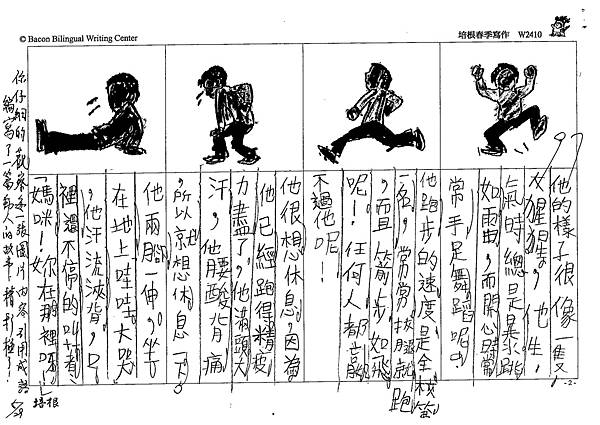 © Bacon Bilingual Writing Center
培根春季寫作 W2410
97
他的樣子很像一隻
大猩猩，他生
氣時總是暴跳
如雷，而開心時常
常手足舞蹈呢！
他跑步的速度是全校第
一名，常常拔腿就跑
，而且箭步如飛
呢！任何人都贏
不過他呢！
他很想休息，因為
他已經跑得精疲
力盡了，他滿頭大
汗，他腰酸背痛
，所以就想休息一下。
他兩腳一伸，坐
在地上哇哇大哭
，他汗流浹背，口
裡還不停的叫著
「媽咪！妳在那裡呀！」
你仔細的觀察每一張圖片內容，引用成語
編寫了一篇動人的故事！精彩極了！
培根
-2-